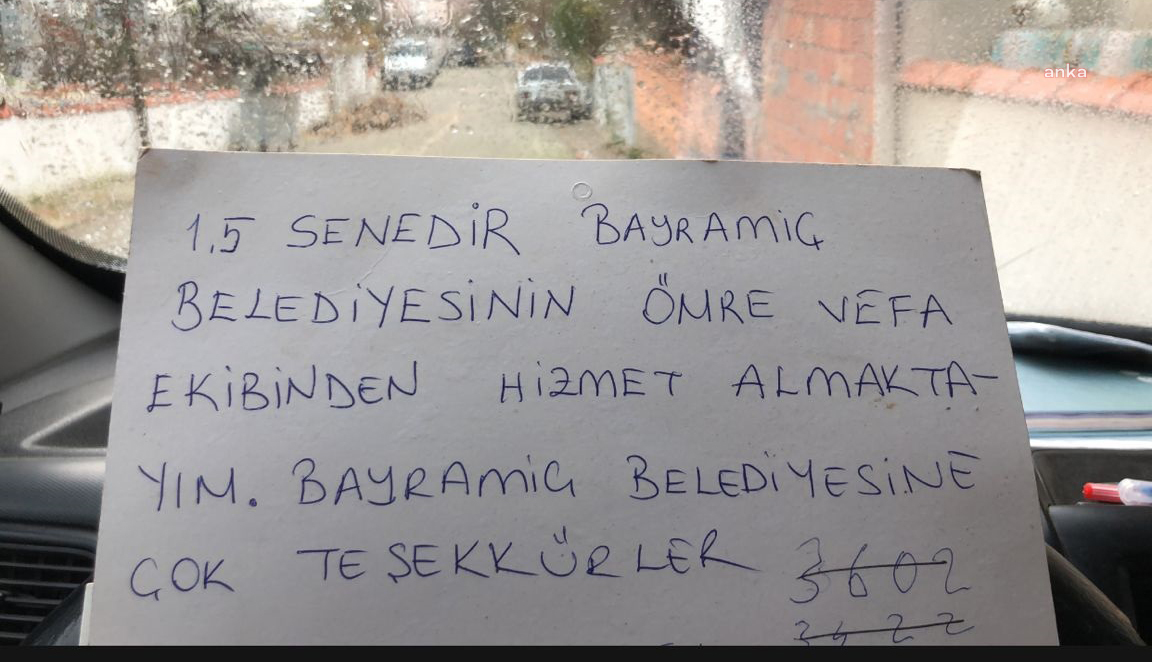 anka
1.5 SENEDİR BAYRAMİÇ
BELEDİYESİNİN ÖMRE VEFA
EKİBİNDEN HİZMET ALMAKTA-
YIM. BAYRAMİÇ BELEDİYESİNE
ÇOK TEŞEKKÜRLER 3602